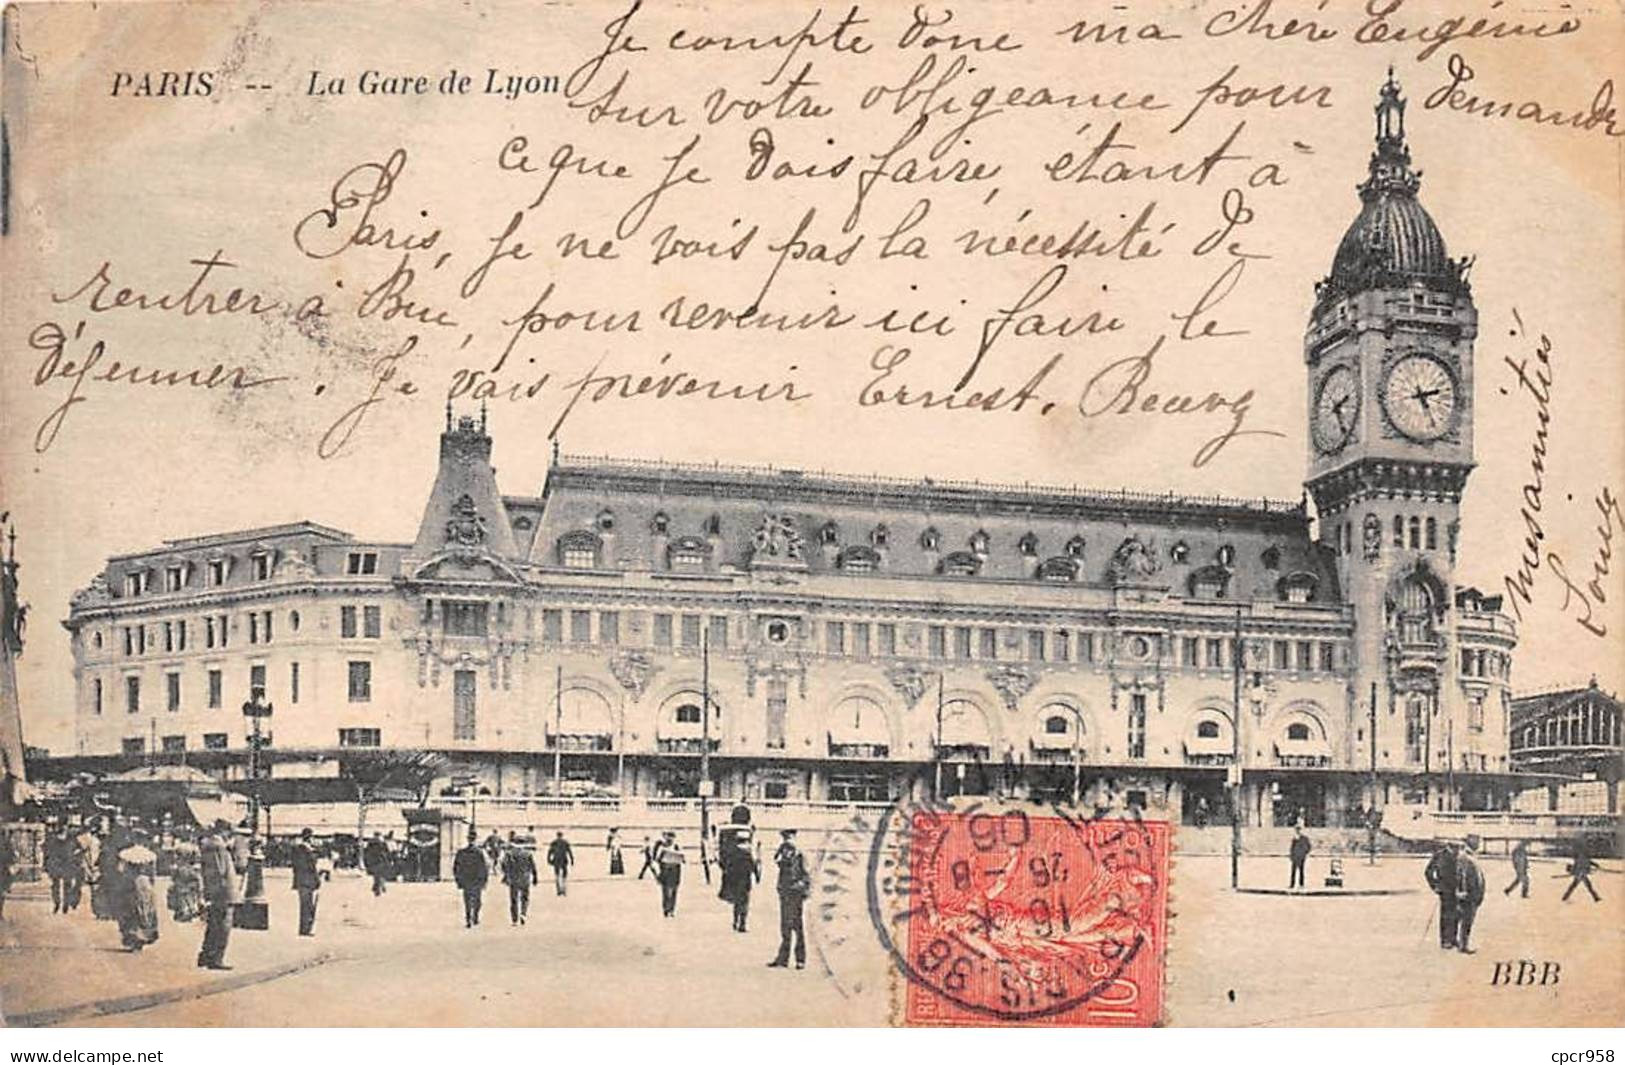 PARIS -- La Gare de Lyon
Je compte donc ma chère Eugénie
sur votre obligeance pour demander
ce que je dois faire, étant à
Paris, je ne vois pas la nécessité de
rentrer à Buc, pour revenir ici faire le
déjeuner. Je vais prévenir Ernest. Recevez
mes amitiés
Louise
PARIS
16
26 - 8
05
10c
BBB
www.delcampe.net
cpcr958